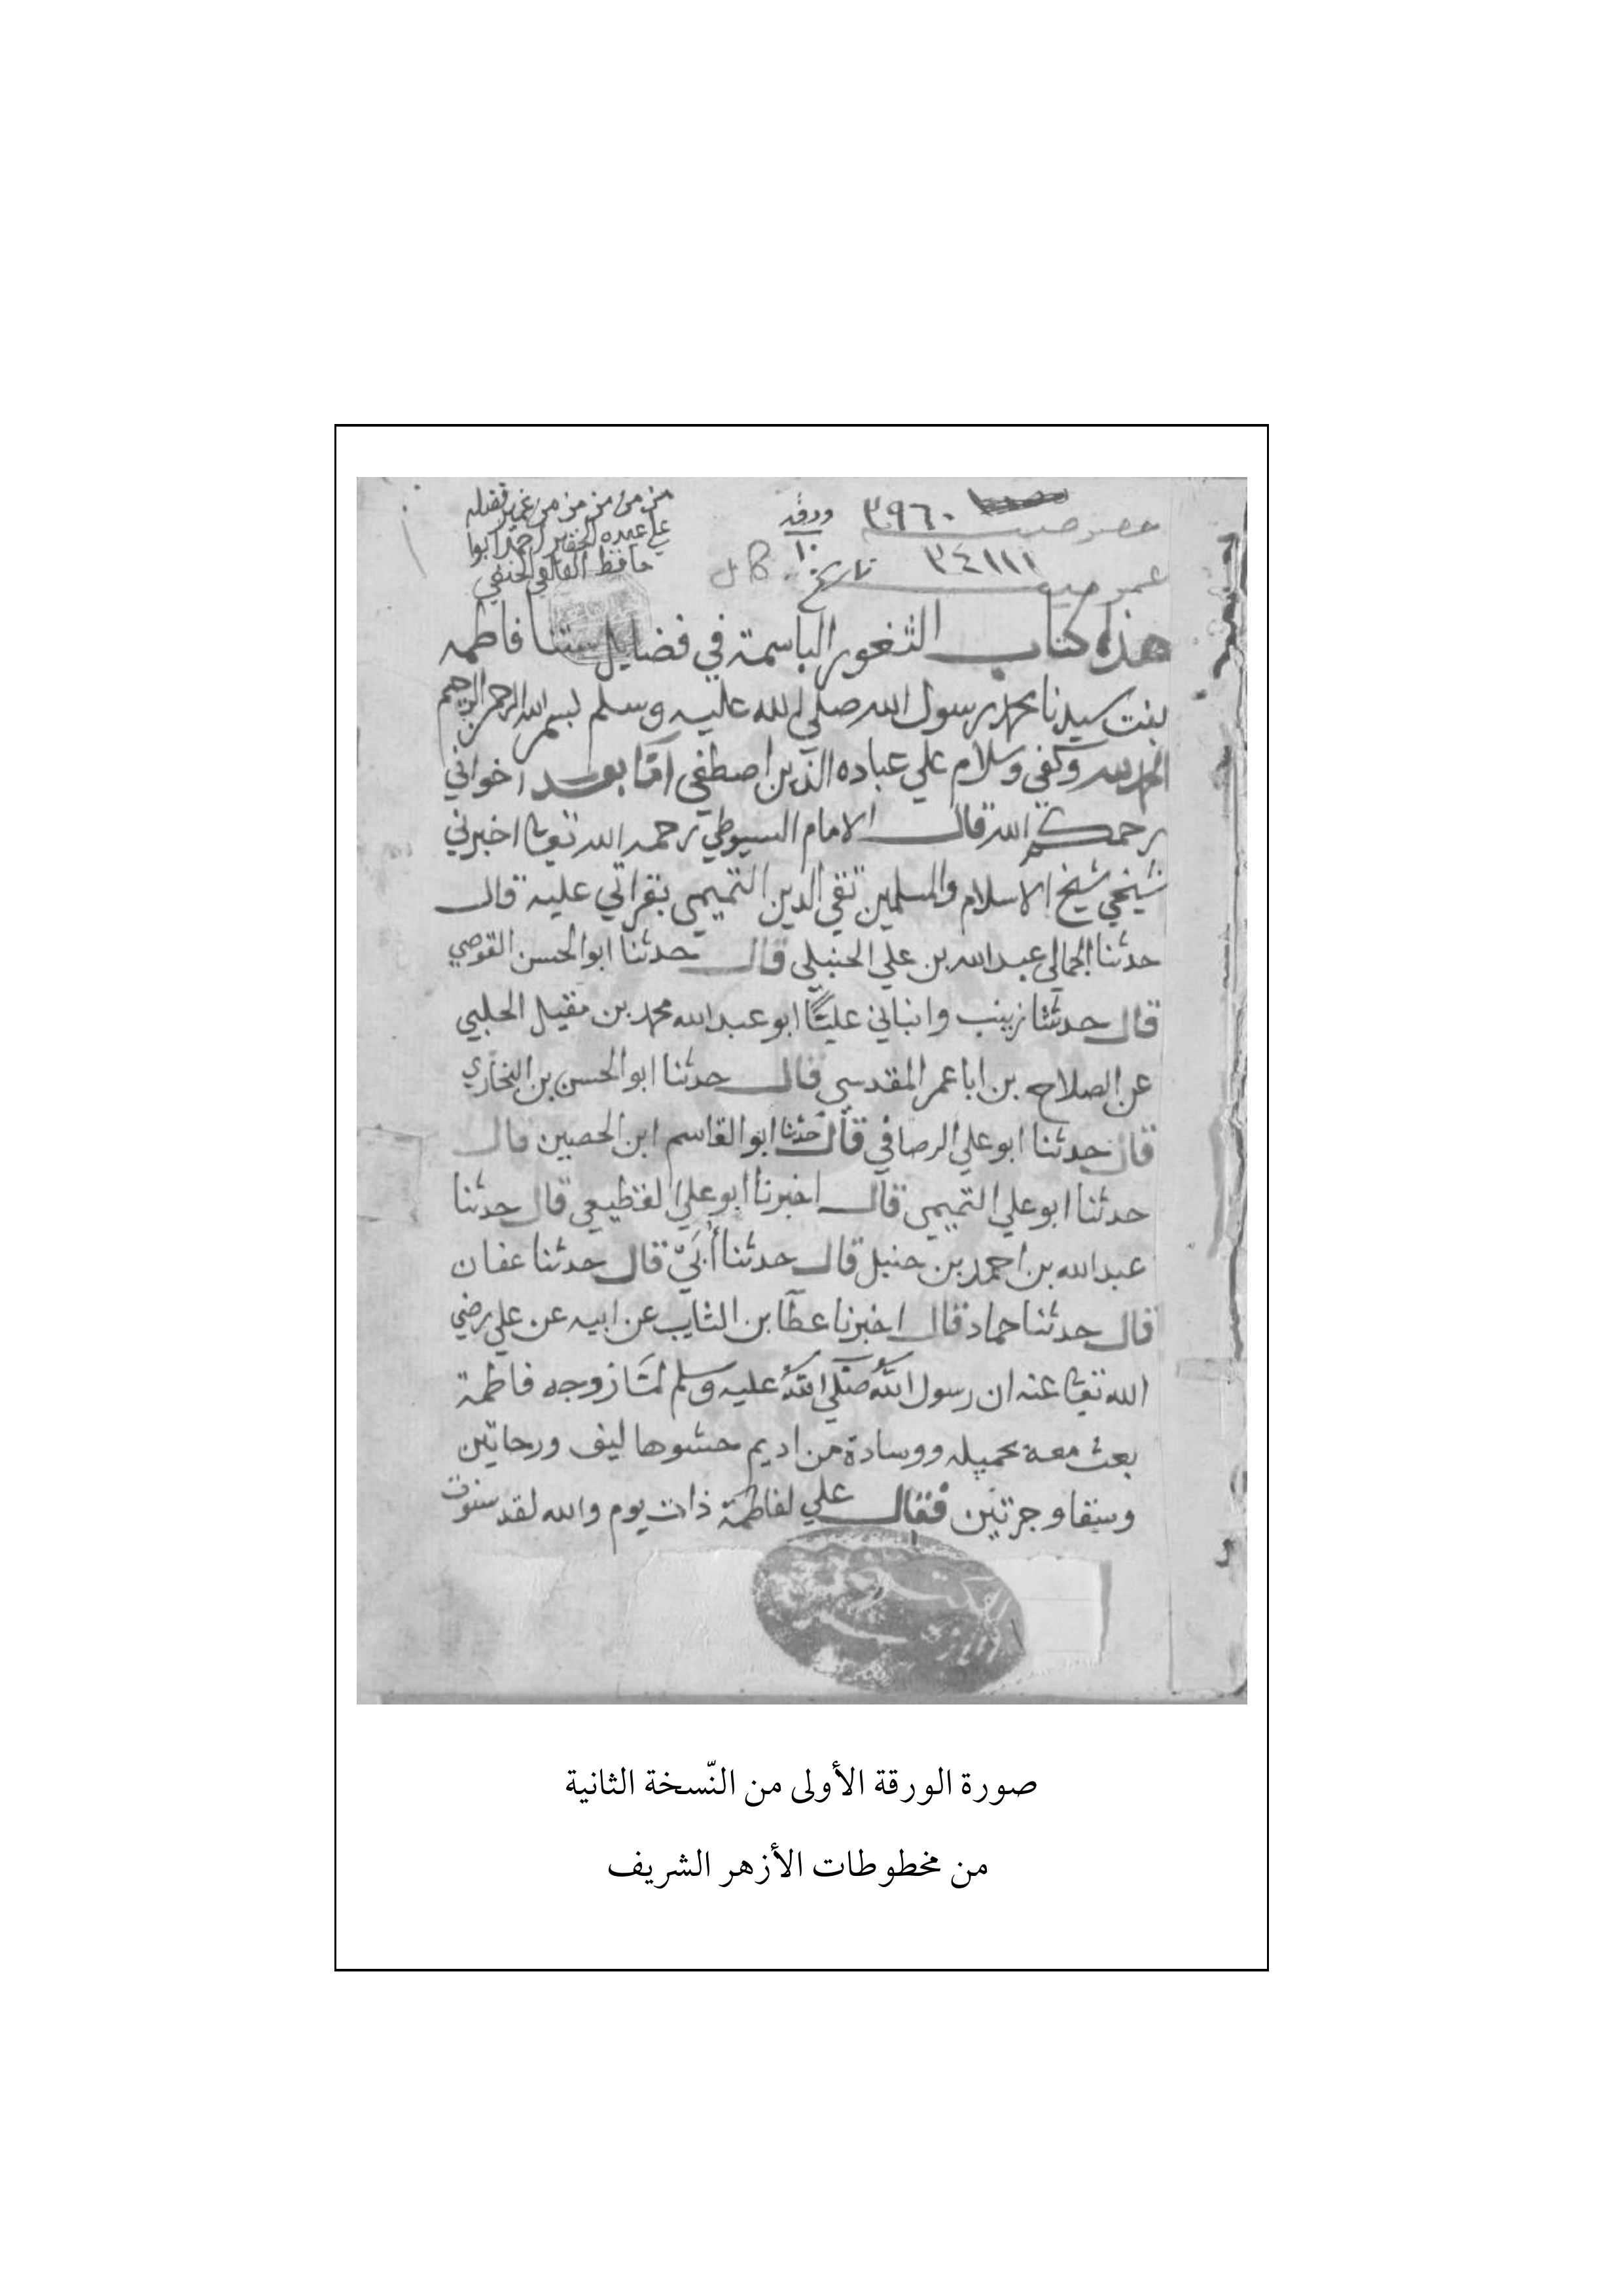 خصوصية ٣٩٦٠ ورقه
١٠
عمومية ٣٤١١١ تاريخ
من من من من من من غير فضله
علي عبده الحقير احمد ابوا
حافظ الحنفي
هذا كتاب الثغور الباسمة في فضايل ستنا فاطمه
بنت سيدنا محمد رسول الله صلي الله عليه وسلم بسم الله الرحمن الرحيم
الحمد لله وكفى وسلام علي عباده الذين اصطفي امّا بعد اخواني
رحمكم الله قال الامام السيوطي رحمه الله تعا اخبرني
شيخي شيخ الاسلام والمسلمين تقي الدين التميمي بقراتي عليه قال
حدثنا الجمالي عبد الله بن علي الحنبلي قال حدثنا ابو الحسن القوصي
قال حدثتنا زينب وانباني عليًّا ابو عبد الله محمد بن مقيل الحلبي
عن الصلاح بن ابا عمر المقدسي قال حدثنا ابو الحسن بن البخاري
قال حدثنا ابو علي الرصافي قال حدثنا ابو القاسم ابن الحصين قال
حدثنا ابو علي التميمي قال اخبرنا ابو علي القطيعي قال حدثنا
عبد الله بن احمد بن حنبل قال حدثنا أبَيّ قال حدثنا عفان
قال حدثنا حماد قال اخبرنا عطا بن الثايب عن ابيه عن علي رضي
الله تعا عنه ان رسول الله صلي الله عليه وسلم لمّا زوجه فاطمة
بعث معه بحميله ووسادة من اديم حشوها ليف ورحاتين
وسقا وجرتين فقال علي لفاطمة ذات يوم والله لقد سنوت
صورة الورقة الأولى من النّسخة الثانية
من مخطوطات الأزهر الشريف